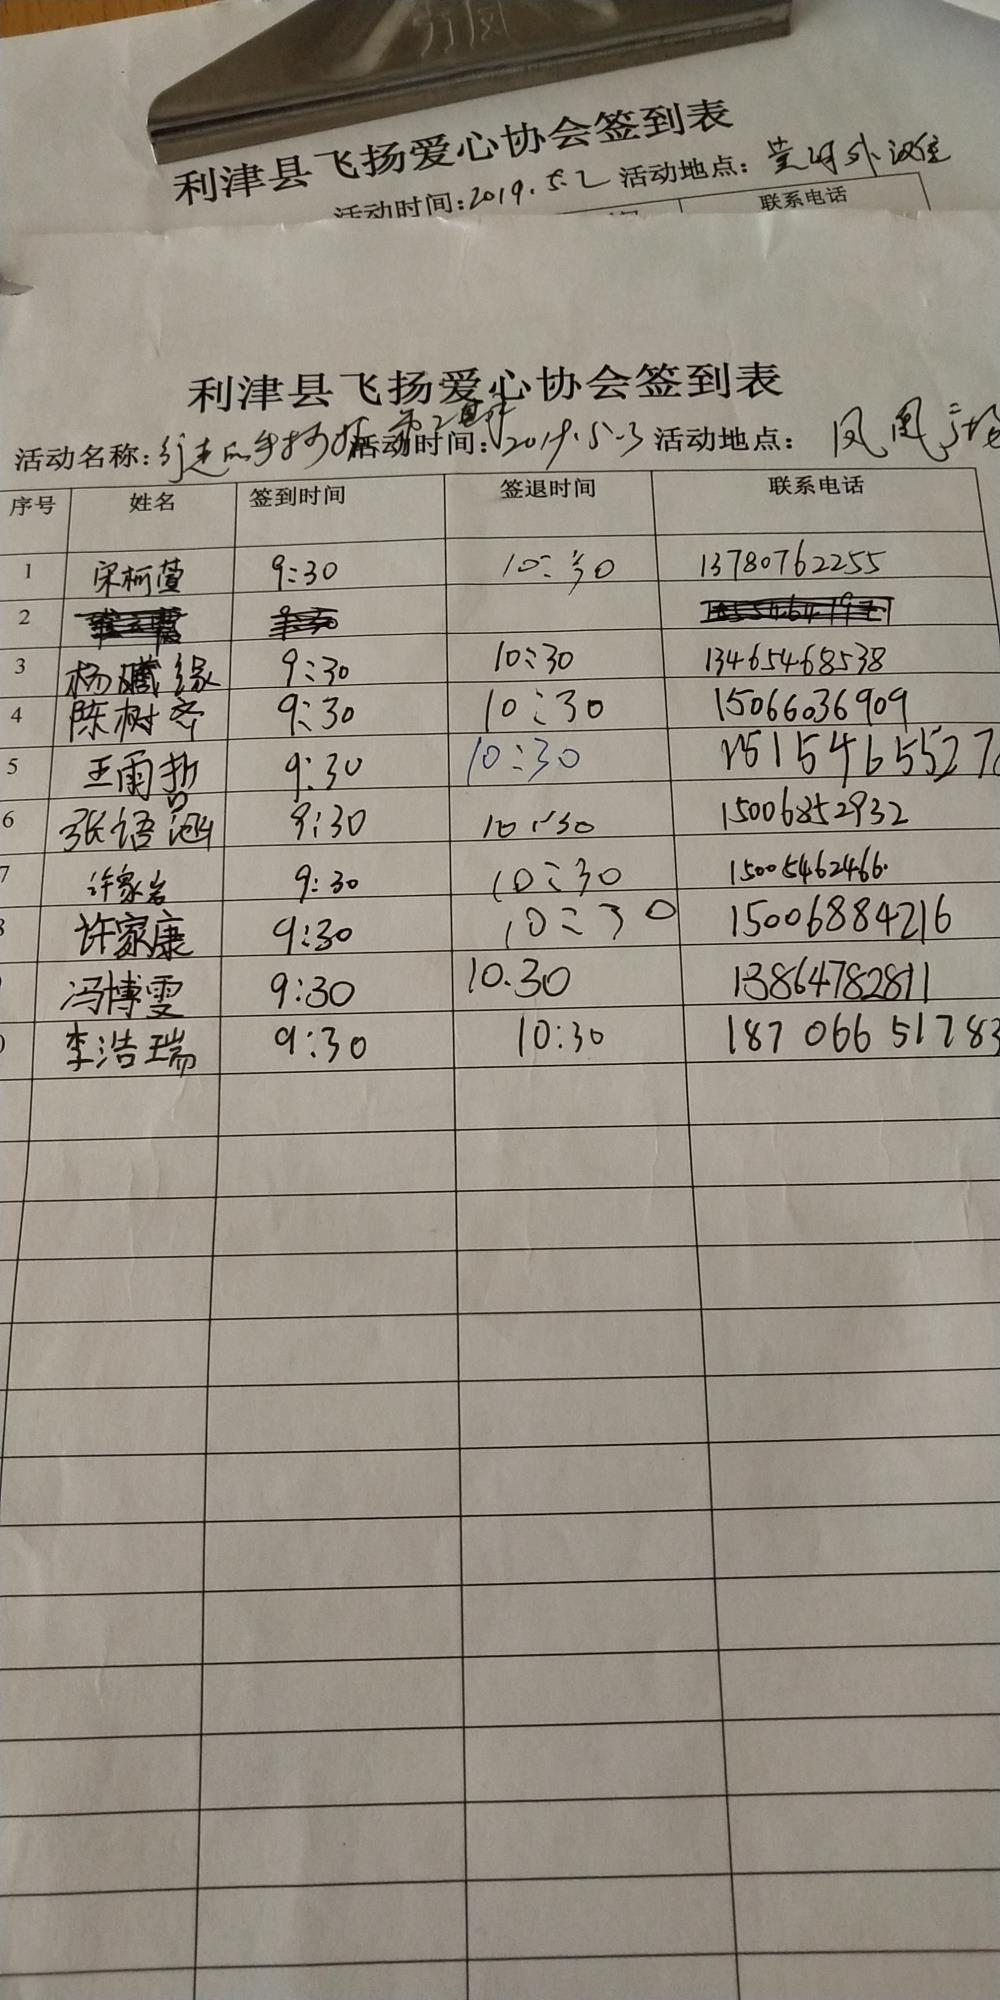 利津县飞扬爱心协会签到表
活动时间:2019.5.2 活动地点:
联系电话
利津县飞扬爱心协会签到表
活动名称: 活动时间:2019.5.3 活动地点: 凤凰广场
序号 姓名 签到时间 签退时间 联系电话
1 宋柯萱 9:30 10:30 13780762255
2
3 杨曦缘 9:30 10:30 13465468538
4 陈树齐 9:30 10:30 15066036909
5 王雨哲 9:30 10:30
6 张语涵 9:30 10:30 15006852932
7 许家岩 9:30 10:30 15005462466.
许家康 9:30 10:30 15006884216
冯博雯 9:30 10.30 13864782811
李浩瑞 9:30 10:30 18706651783